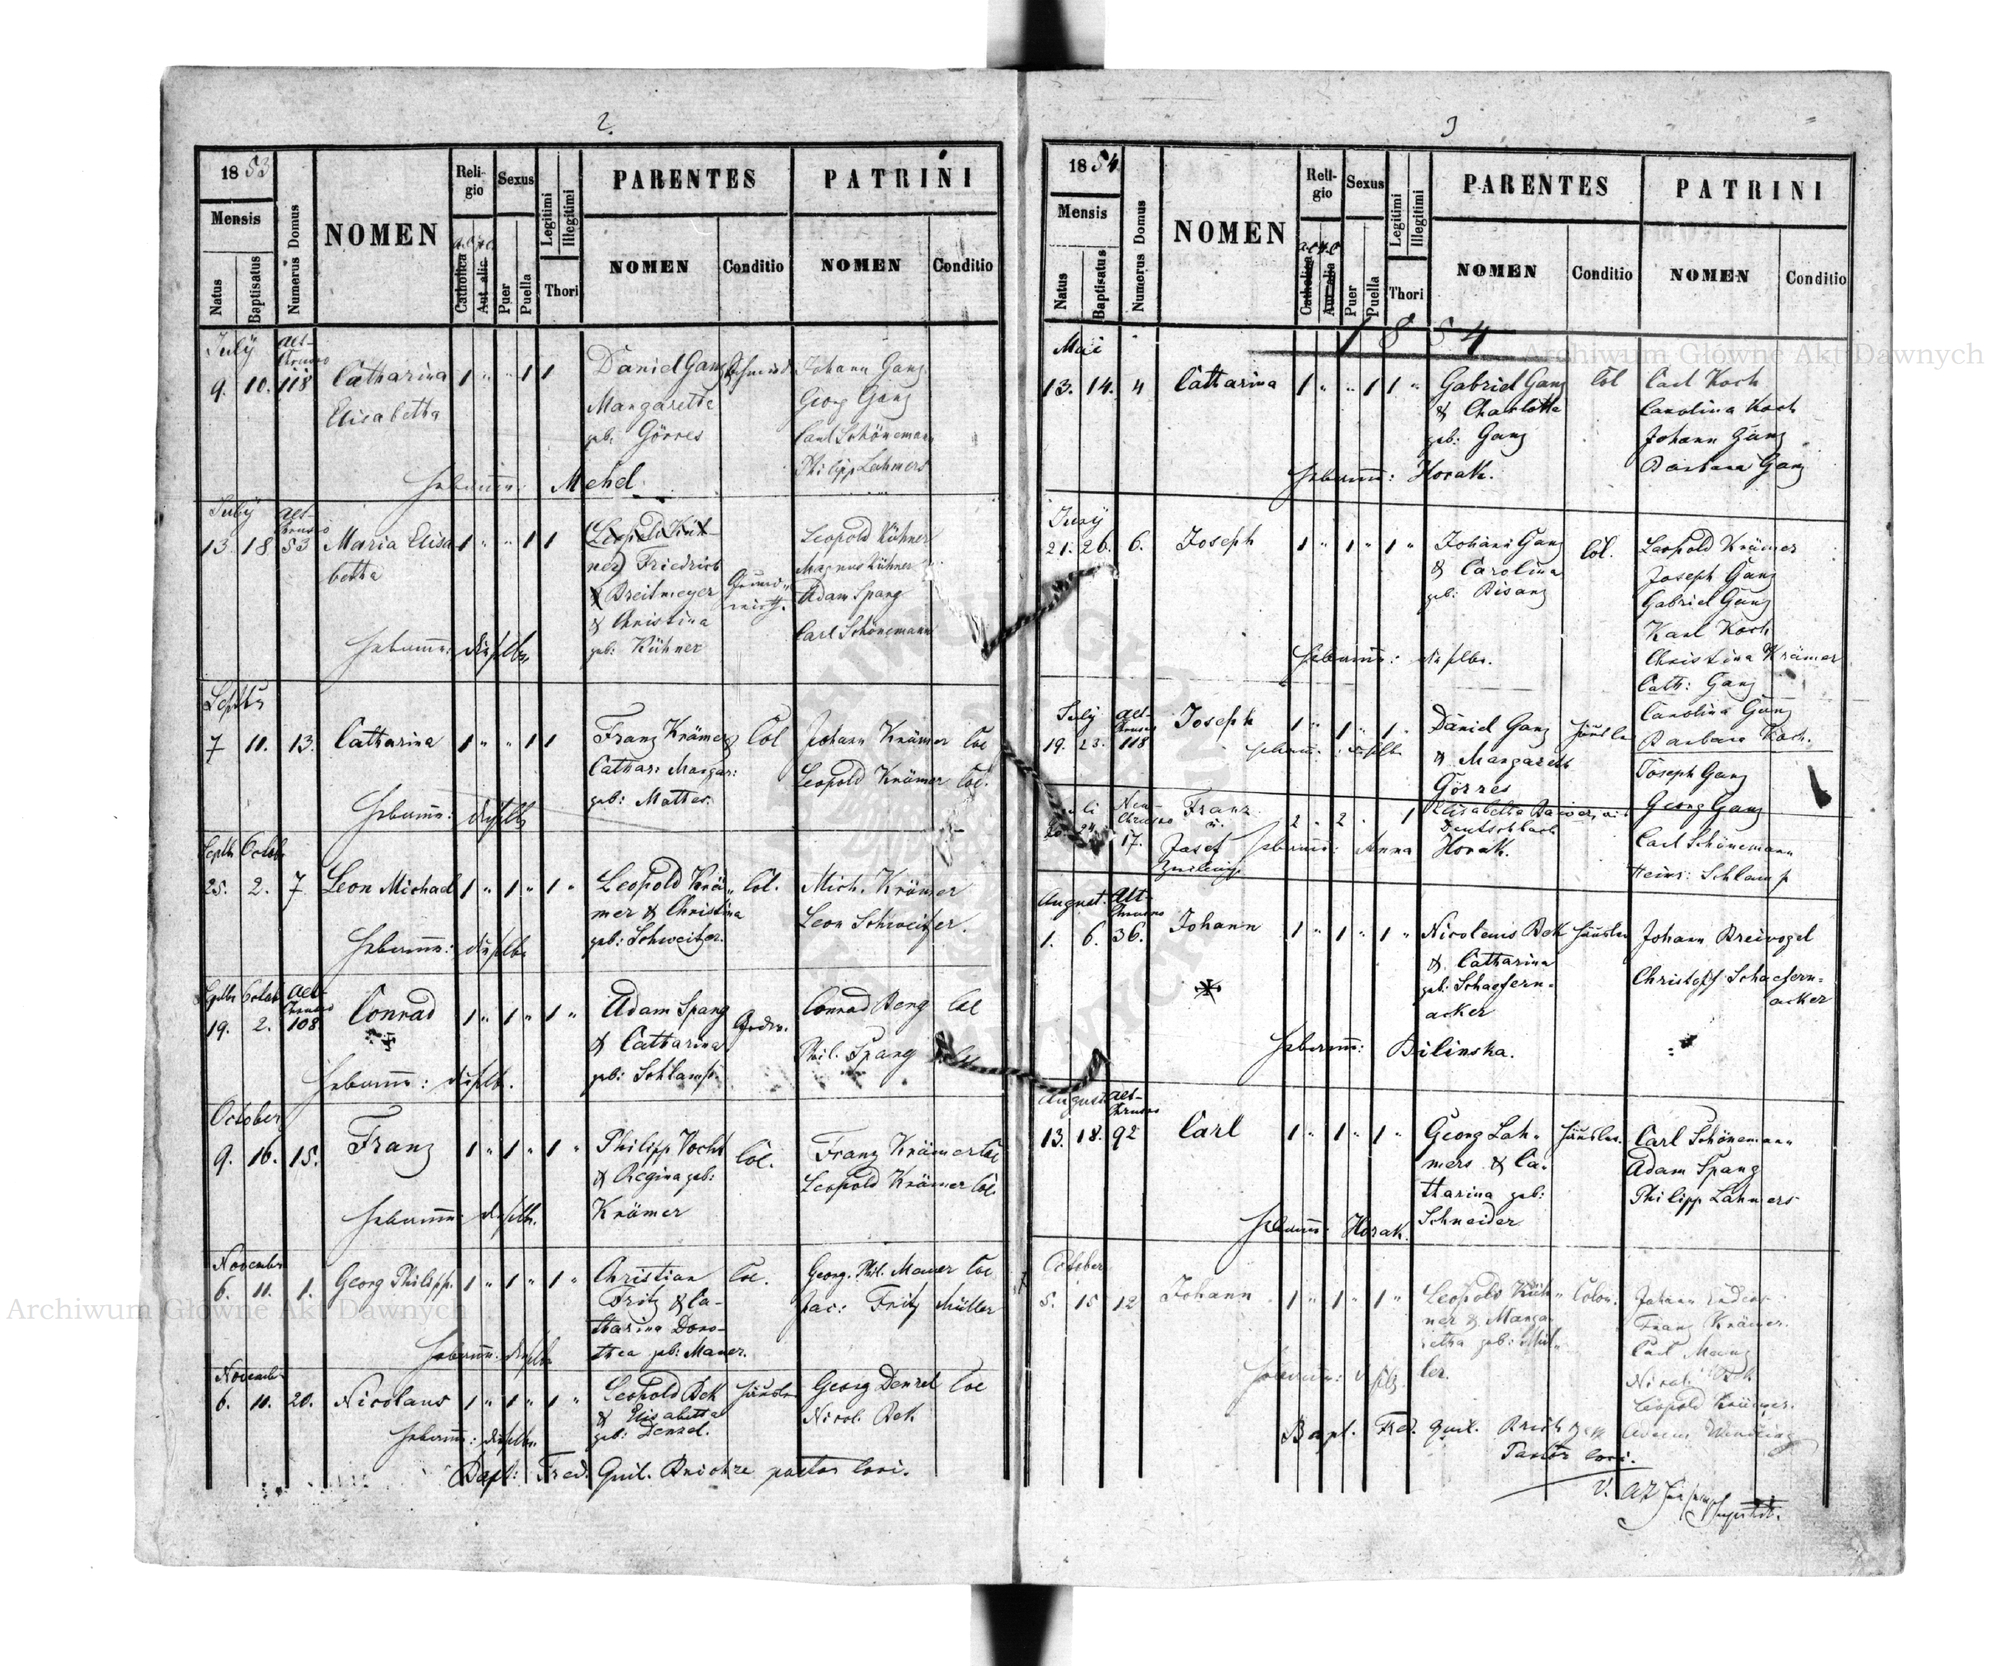 2.
1853
Mensis
Natus
Baptisatus
Numerus Domus
NOMEN
Reli-
gio
Catholica
Aut alia
Sexus
Puer
Puella
Legitimi
Illegitimi
Thori
PARENTES
NOMEN
Conditio
PATRINI
NOMEN
Conditio
July
9. 10. 118 Catharina 1 " " 1 1 Daniel Ganz Johann Ganz
Elisabetha Margaretha Georg Ganz
geb: Görres Carl Schönemann
Philipp Lahmers
Hebamme: Mehel.
July
13. 18 53 Maria Elisa 1 " " 1 1 Leopold Küh- Leopold Kühner
betha ner Friedrich Magnus Kühner
Breitmeyer Adam Spang
& Christina Carl Schönemann
geb: Kühner
Hebamme: dieselbe.
Septbr
7 11. 13. Catharina 1 " " 1 1 Franz Krämer Col Johann Krämer Col
Cathar: Margar: Leopold Krämer Col.
geb: Mattes.
Hebamme: dieselbe
Septbr Octob.
25. 2. 7. Leon Michael 1 " 1 " 1 " Leopold Krä- Col. Mich. Krämer
mer & Christina Leon Schweitzer.
geb: Schweitzer.
Hebamme: dieselbe
Septbr October Alt-
Chrusno
19. 2. 108 Conrad 1 " 1 " 1 " Adam Spang Conrad Berg Col
& Catharina Phil. Spang
geb: Schlamp.
Hebamme: dieselbe.
October
9. 16. 15. Franz 1 " 1 " 1 " Philipp Vocht Col. Franz Krämer Col
& Regina geb: Leopold Krämer Col.
Krämer
Hebamme: dieselbe.
November
6. 11. 1. Georg Philipp. 1 " 1 " 1 " Christian Col. Georg. Phil. Mauer Col
Fritz & Ca- Jac: Fritz Müller
tharina Doro-
thea geb: Mauer.
Hebamme: dieselbe
November
6. 11. 20. Nicolaus 1 " 1 " 1 " Leopold Bek Häusler Georg Denzel Col
& Elisabetha Nicol. Bek
geb: Denzel.
Hebamme: dieselbe.
Bapt: Fred. Guil. pastor loci.
3
1854
Mensis
Natus
Baptisatus
Numerus Domus
NOMEN
Reli-
gio
Catholica
Aut alia
Sexus
Puer
Puella
Legitimi
Illegitimi
Thori
PARENTES
NOMEN
Conditio
PATRINI
NOMEN
Conditio
1854
Mai
13. 14. 4 Catharina 1 " " 1 1 " Gabriel Ganz Col Carl Koch
& Charlotte Carolina Koch
geb: Ganz Johann Ganz
Hebamme: Horak. Barbara Ganz
Juny
21. 26. 6. Joseph 1 " 1 " 1 " Johann Ganz Col. Leopold Krämer
& Carolina Joseph Ganz
geb: Bisanz Gabriel Ganz
Karl Koch
Hebamme: dieselbe. Christina Krämer
Cath: Ganz
Carolina Ganz
Barbara Koch.
July Alt-
Chrusno
19. 23. 118 Joseph 1 " 1 " 1 " Daniel Ganz Häusler
Hebamme: dieselbe & Margareth Joseph Ganz
Görres Georg Ganz
Neu-
Chrusno
17. Franz 2 " 2 " 1 Elisabetha
u. Josef Deutschbach Carl Schönemann
Zwilling Hebamme: Anna Horak. Heinr: Schlamp
August. Alt-
Chrusno
1. 6. 36. Johann 1 " 1 " 1 " Nicolaus Bek Häusler Johann Breivogel
& Catharina Christoff Schaefern-
geb: Schaefern- acker
acker
Hebamme: Bilinska.
August Alt-
Chrusno
13. 18. 92 Carl 1 " 1 " 1 " Georg Lah- Häusler. Carl Schönemann
mers & Ca- Adam Spang
tharina geb: Philipp Lahmers
Schneider
Hebamme: Horak.
October
5. 15 12 Johann 1 " 1 " 1 " Leopold Küh- Colon. Johann
ner & Marga- Franz Krämer.
retha geb: Mül- Carl Manz
ler. Nicol. Bek
Hebamme: Leopold Krämer.
Bapt. Fred. Guil. Adam
Pastor loci.
Archiwum Główne Akt Dawnych
Archiwum Główne Akt Dawnych